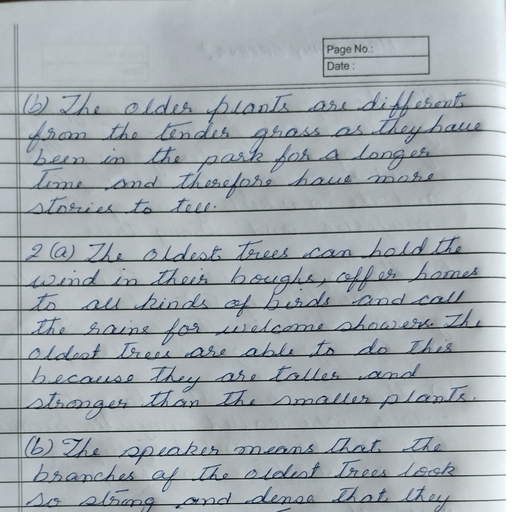 Page No.:
Date :
(b) The older plants are different
from the tender grass as they have
been in the park for a longer
time and therefore have more
stories to tell.
2 (a) The oldest trees can hold the
wind in their boughs, offer homes
to all kinds of birds and call
the rains for welcome showers. The
oldest trees are able to do this
because they are taller and
stronger than the smaller plants.
(b) The speaker means that the
branches of the oldest trees look
so strong and dense that they